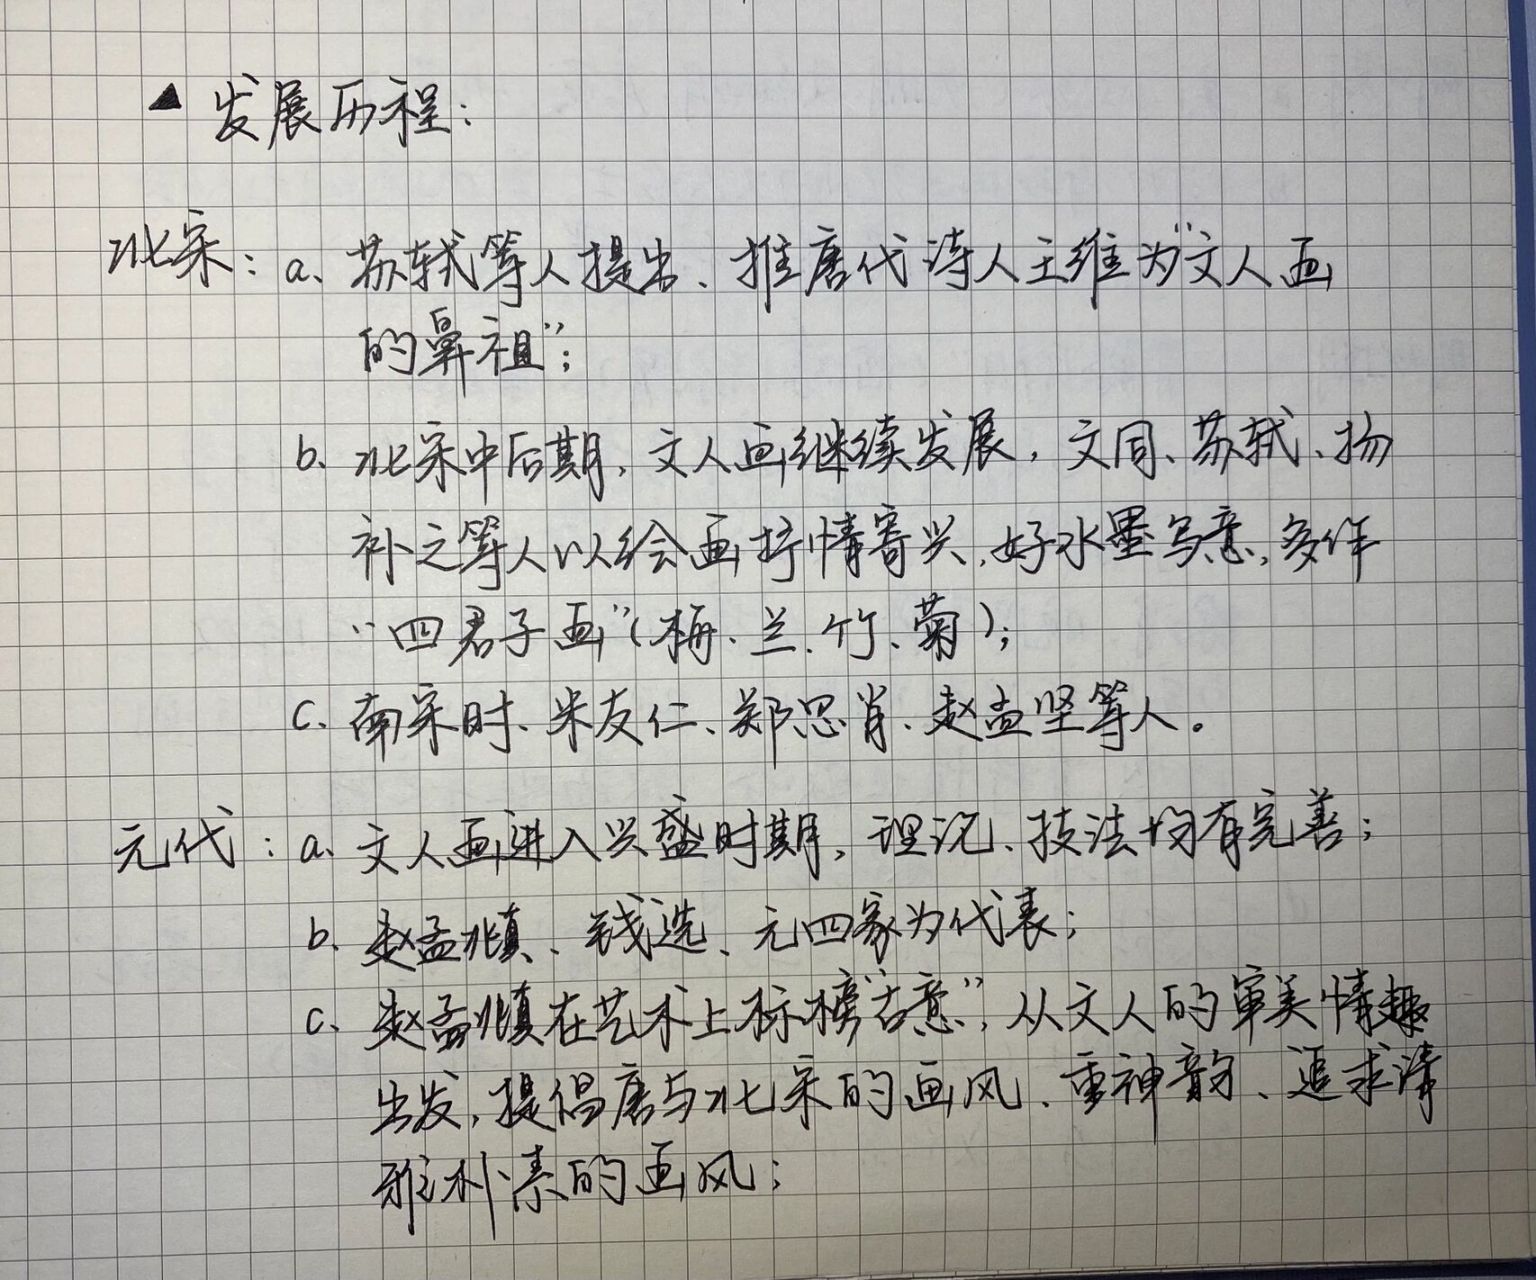 ▲ 发展历程：
北宋：a、苏轼等人提出、推唐代诗人王维为“文人画
的鼻祖”；
b、北宋中后期，文人画继续发展，文同、苏轼、扬
补之等人以绘画抒情寄兴，好水墨写意，多作
“四君子画”（梅、兰、竹、菊）；
c、南宋时、米友仁、郑思肖、赵孟坚等人。
元代：a、文人画进入兴盛时期，理论、技法均有完善；
b、赵孟頫、钱选、元四家为代表；
c、赵孟頫在艺术上标榜“古意”，从文人的审美情趣
出发，提倡唐与北宋的画风、重神韵、追求清
雅朴素的画风；